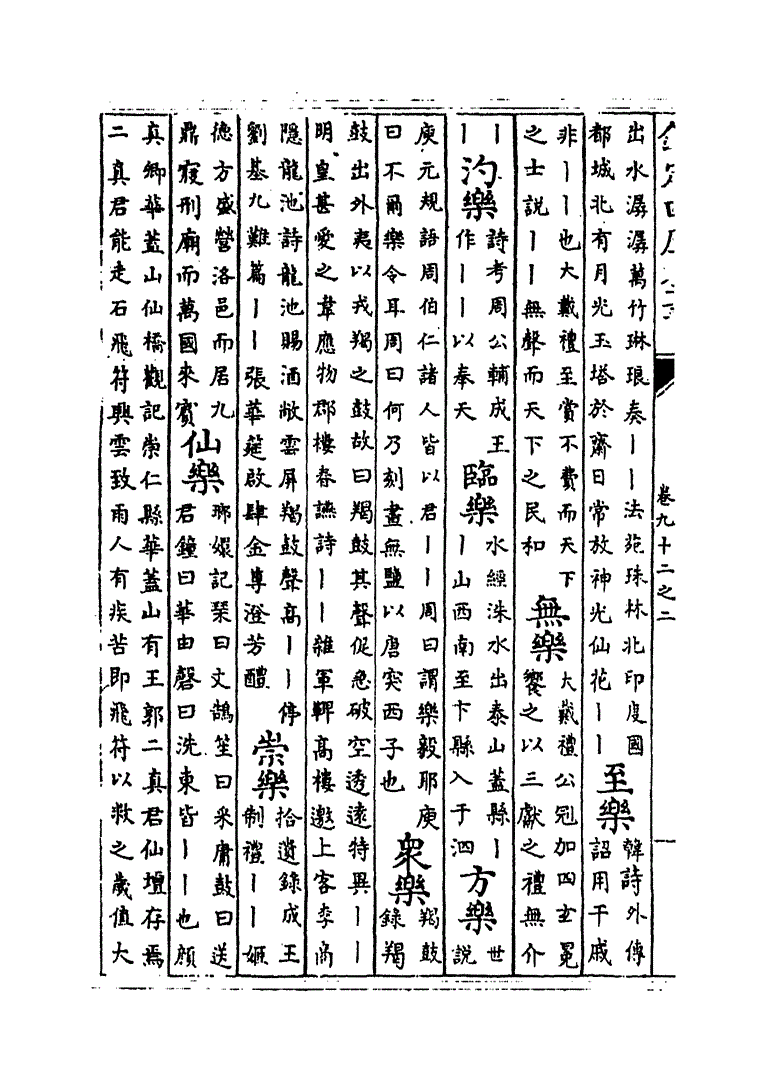 欽定四庫全書
卷九十二之二
一
出水潺潺萬竹琳琅奏丨丨法苑珠林北印度國
都城北有月光玉塔於齋日常放神光仙花丨丨
至樂
韓詩外傳
詔用干戚
非丨丨也大戴禮至賞不費而天下
之士說丨丨無聲而天下之民和
無樂
大戴禮公冠加四玄冕
饗之以三獻之禮無介
丨
丨
汋樂
詩考周公輔成王
作丨丨以奉天
臨樂
水經洙水出泰山蓋縣丨
丨山西南至卞縣入于泗
方樂
世
說
庾元規語周伯仁諸人皆以君丨丨周曰謂樂毅耶庾
曰不爾樂令耳周曰何乃刻畫無鹽以唐突西子也
衆樂
羯鼓
錄羯
鼓出外夷以戎羯之鼓故曰羯鼓其聲促急破空透遠特異丨丨
明皇甚愛之韋應物郡樓春讌詩丨丨雜軍鞞高樓邀上客李商
隱龍池詩龍池賜酒敞雲屏羯鼓聲高丨丨停
劉基九難篇丨丨張華筵啟肆金尊澄芳醴
崇樂
拾遺錄成王
制禮丨丨姬
德方盛營洛邑而居九
鼎寢刑廟而萬國來賓
仙樂
瑯嬛記琹曰文鵠笙曰采庸鼓曰送
君鐘曰華由磬曰洗東皆丨丨也顔
真卿華蓋山仙橋觀記崇仁縣華蓋山有王郭二真君仙壇存焉
二真君能走石飛符興雲致雨人有疾苦即飛符以救之歲值大